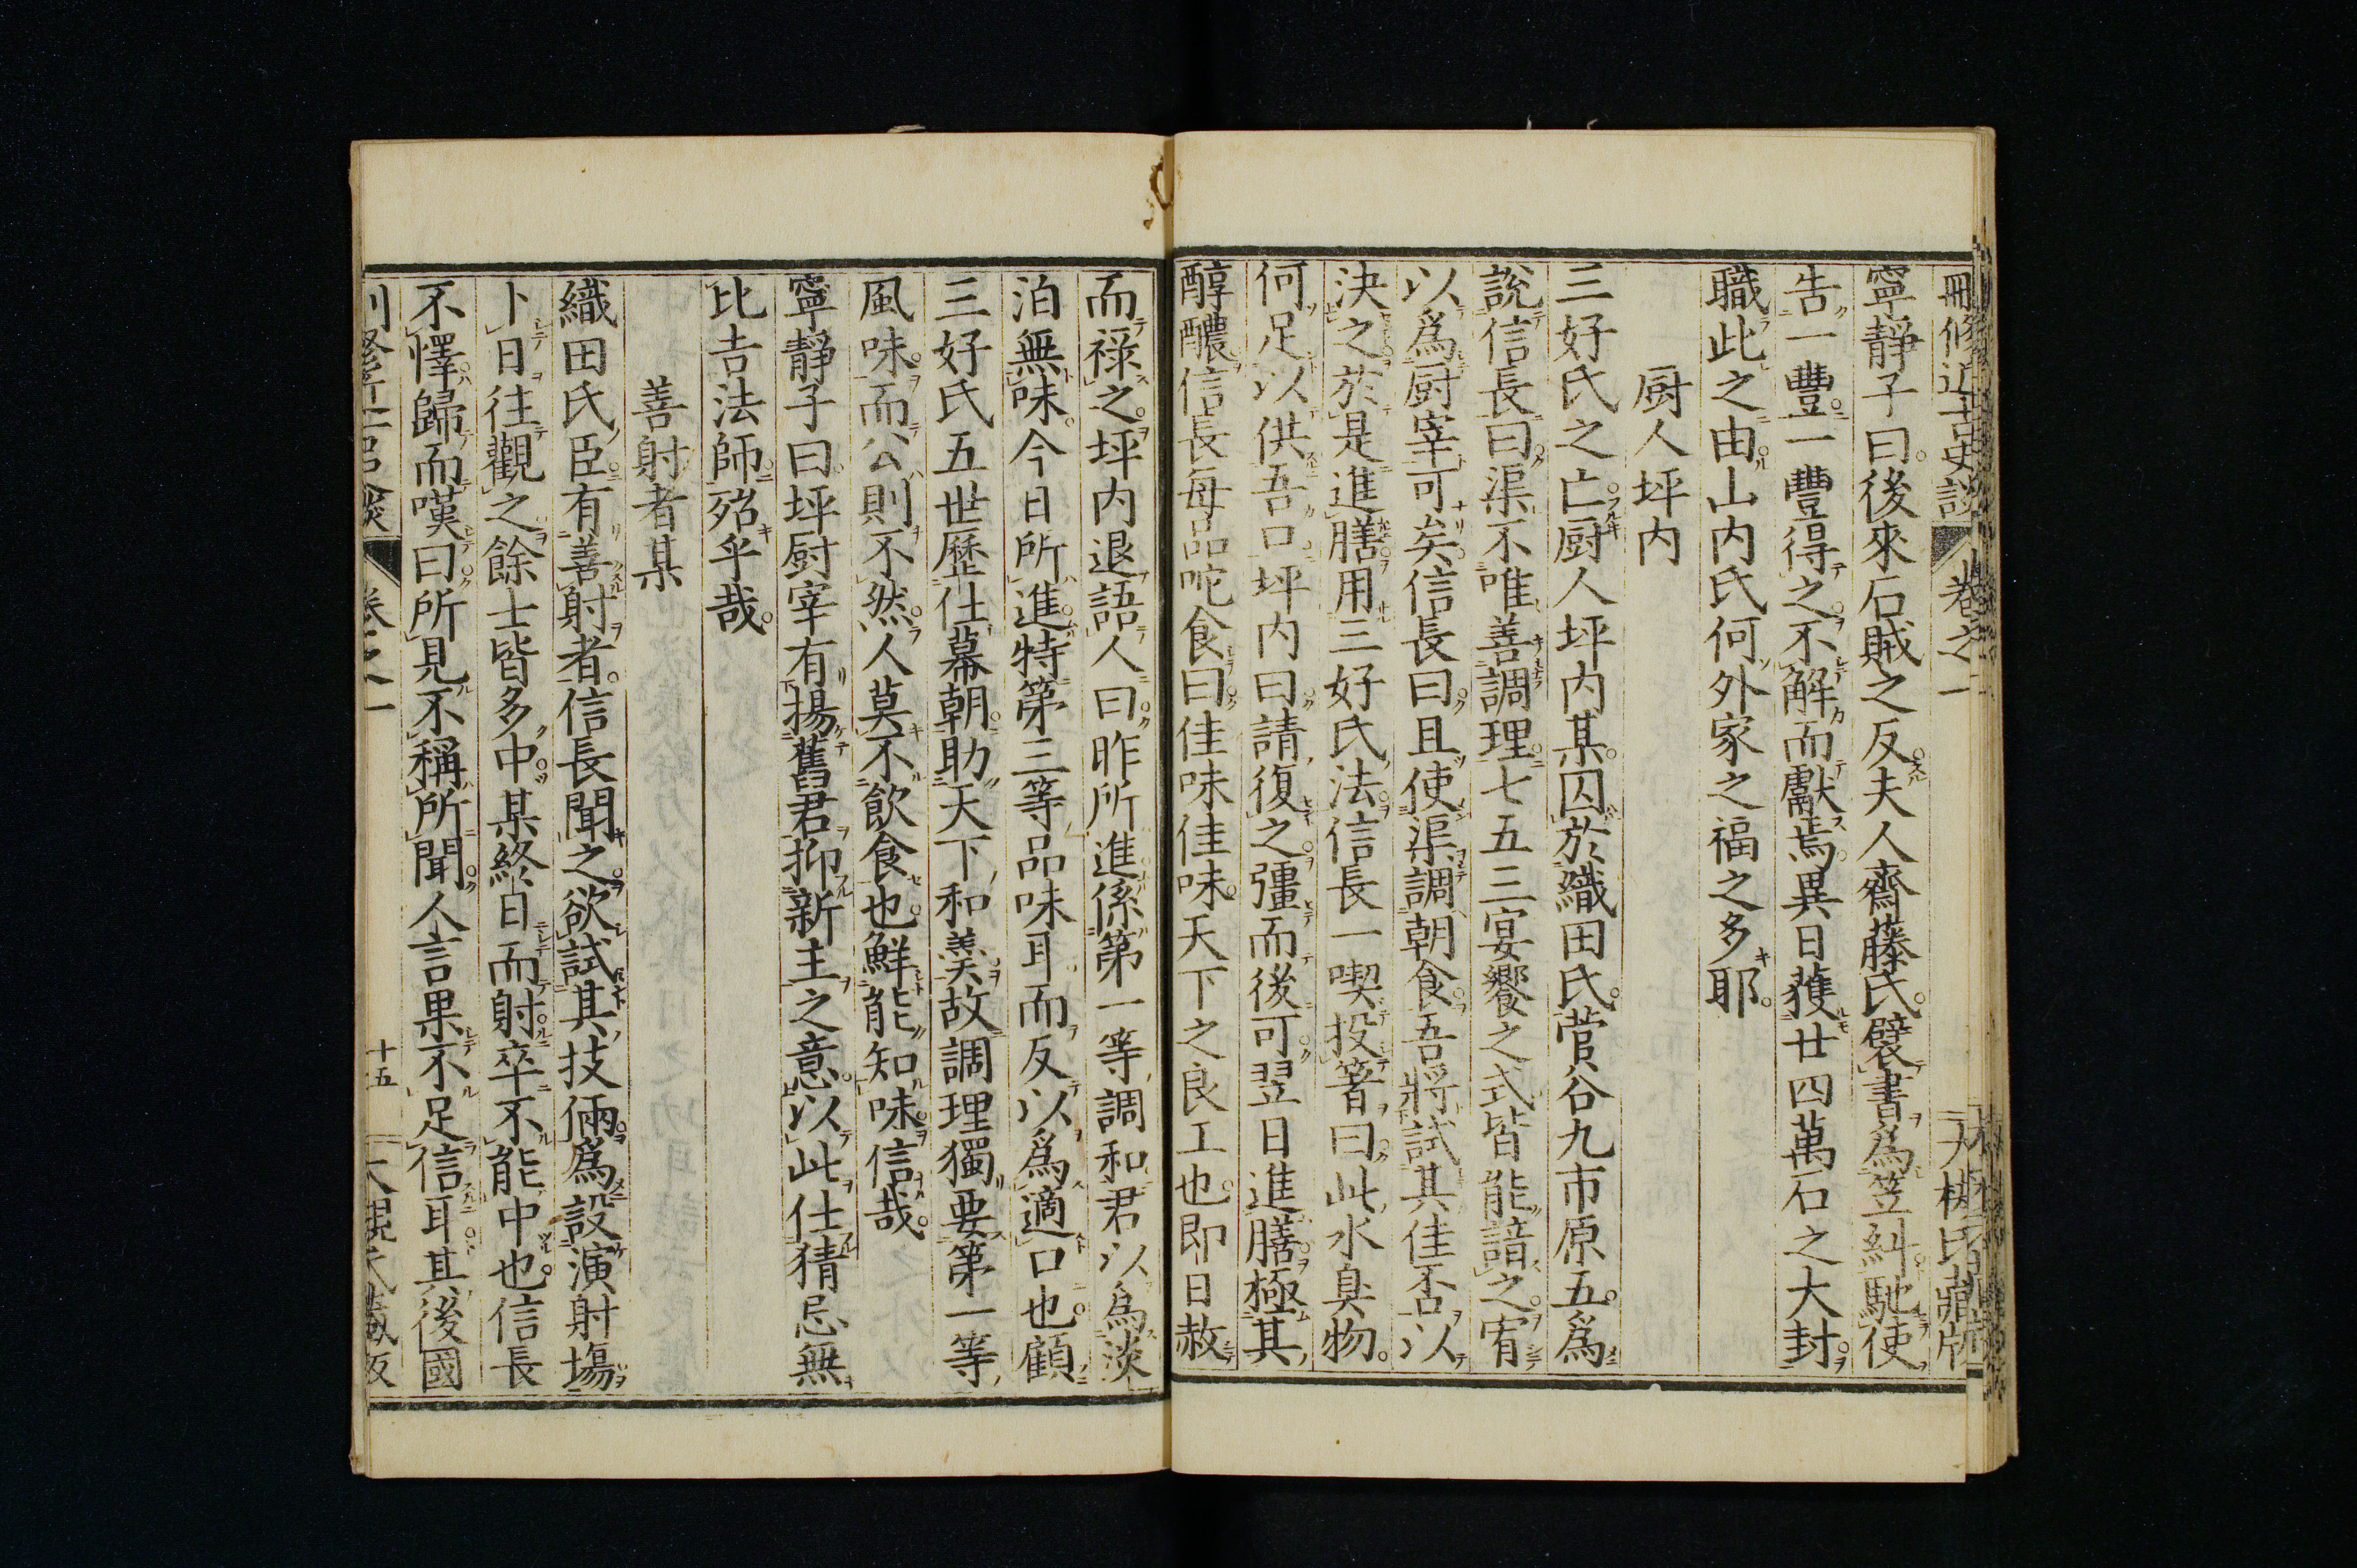 刪修近古史談 卷之一 大槻氏藏版
寧靜子曰後來石賊之反夫人齋藤氏襞書爲笠糾馳使
告一豐一豐得之不解而獻焉異日獲廿四萬石之大封
職此之由山内氏何外家之福之多耶
厨人坪内
三好氏之亡厨人坪内某囚於織田氏菅谷九市原五爲
說信長曰渠不唯善調理七五三宴饗之式皆能諳之宥
以爲厨宰可矣信長曰且使渠調朝食吾將試其佳否以
決之於是進膳用三好氏法信長一喫投箸曰此水臭物
何足以供吾口坪内曰請復之彊而後可翌日進膳極其
醇醲信長每品咜食曰佳味佳味天下之良工也即日赦
而祿之坪内退語人曰昨所進係第一等調和君以為淡
泊無味今日所進特第三等品味耳而反以爲適口也顧
三好氏五世歷仕幕朝助天下和羹故調理獨要第一等
風味而公則不然人莫不飲食也鮮能知味信哉
寧靜子曰坪厨宰有揚舊君抑新主之意以此仕猜忌無
比吉法師殆乎哉
善射者某
織田氏臣有善射者信長聞之欲試其技倆爲設演射場
卜日往觀之餘士皆多中某終日而射卒不能中也信長
不懌歸而嘆曰所見不稱所聞人言果不足信耳其後國
卷之一 十五